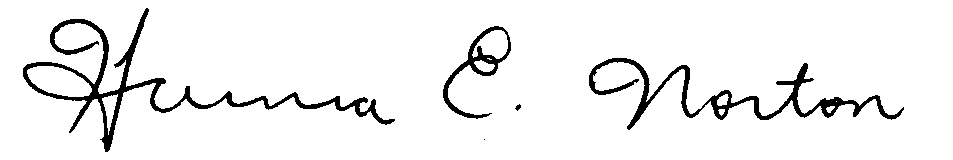 Hanna E. Norton